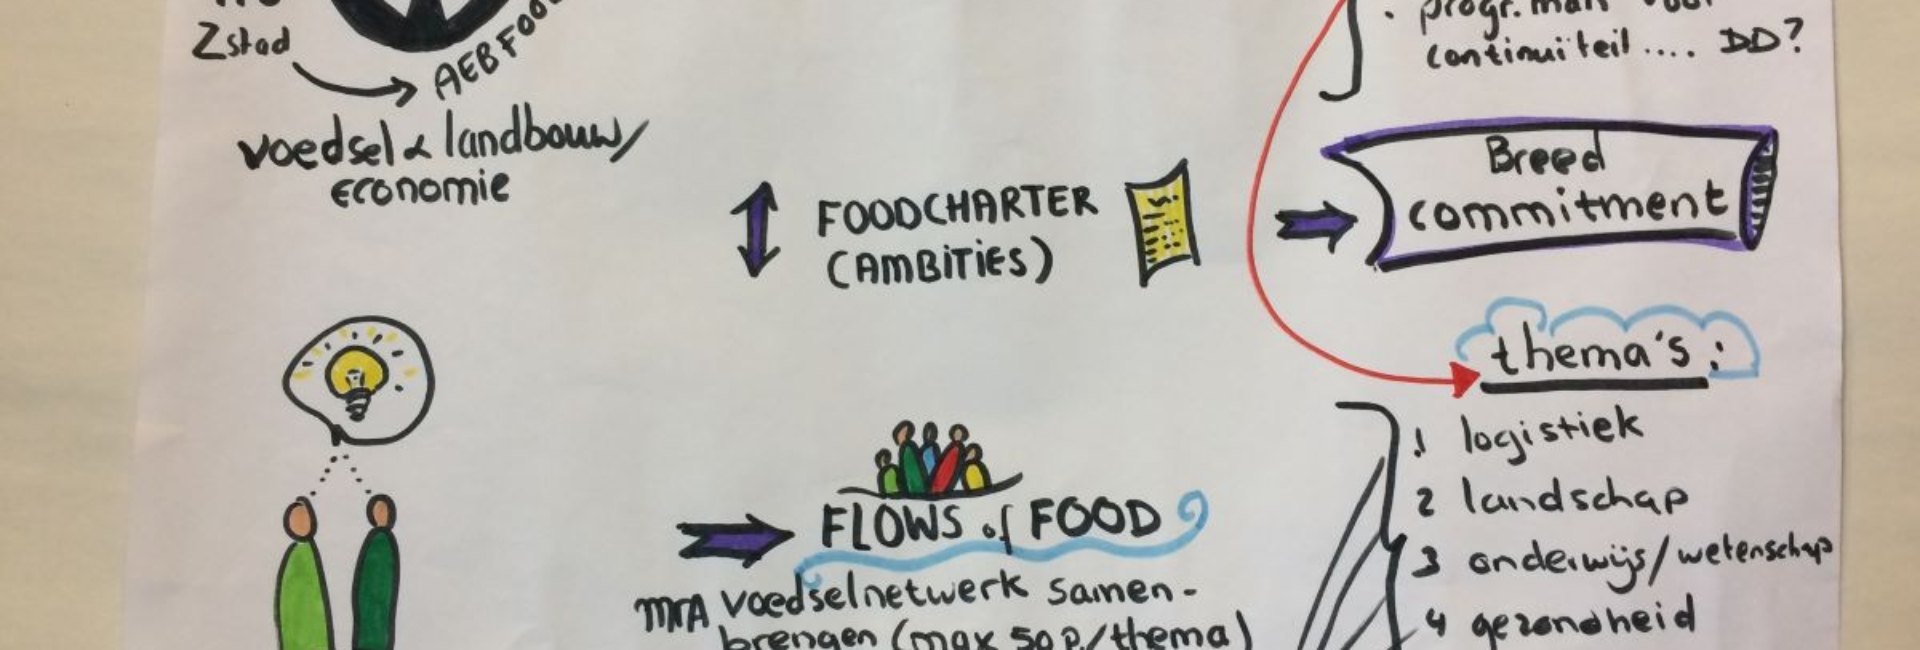 Zstad
AEBFOO
voedsel & landbouw/
economie
FOODCHARTER
(AMBITIES)
FLOWS of FOOD
MRA voedselnetwerk samen-
brengen (max 50 p./thema)
. progr.man voor
continuiteit .... DD?
Breed
commitment
thema's:
1 logistiek
2 landschap
3 onderwijs/wetenschap
4 gezondheid